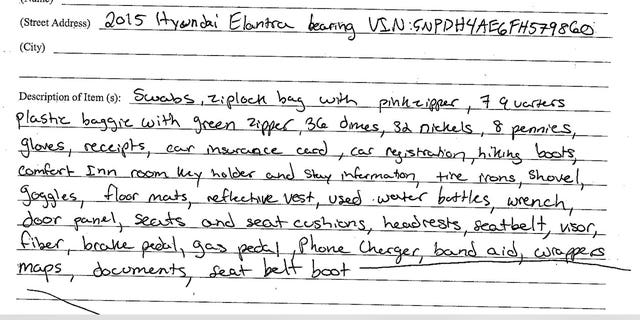 (Street Address) 2015 Hyundai Elantra bearing VIN:5NPDH4AE6FH579860
(City)
Description of Item (s): Swabs, ziplock bag with pink zipper, 79 quarters
plastic baggie with green zipper, 36 dimes, 32 nickels, 8 pennies,
gloves, receipts, car insurance card, car registration, hiking boots,
comfort Inn room key holder and stay information, tire irons, shovel,
goggles, floor mats, reflective vest, used water bottles, wrench,
door panel, seats and seat cushions, headrests, seatbelt, visor,
fiber, brake pedal, gas pedal, Phone Charger, band aid, wrappers
maps, documents, seat belt boot